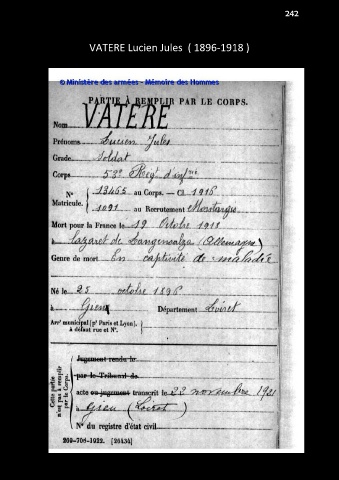 242
VATERE Lucien Jules ( 1896-1918 )
© Ministère des armées - Mémoire des Hommes
PARTIE À REMPLIR PAR LE CORPS.
Nom VATERE
Prénoms Lucien Jules
Grade Soldat
Corps 53e Rég' d'infrie
N° 13465 au Corps. — Cl 1916
Matricule. 1091 au Recrutement Montargis
Mort pour la France le 19 Octobre 1918
à Lazaret de Langensalza (Allemagne)
Genre de mort En captivité de maladie
Né le 25 octobre 1896
à Département Loiret
Arrt municipal (pr Paris et Lyon),
à défaut rue et N°.
Cette partie n'est pas à remplir par le Corps.
Jugement rendu le
par le Tribunal de
acte ou jugement transcrit le 22 novembre 1921
à (Loiret)
N° du registre d'état civil
269-708-1922. [26434]